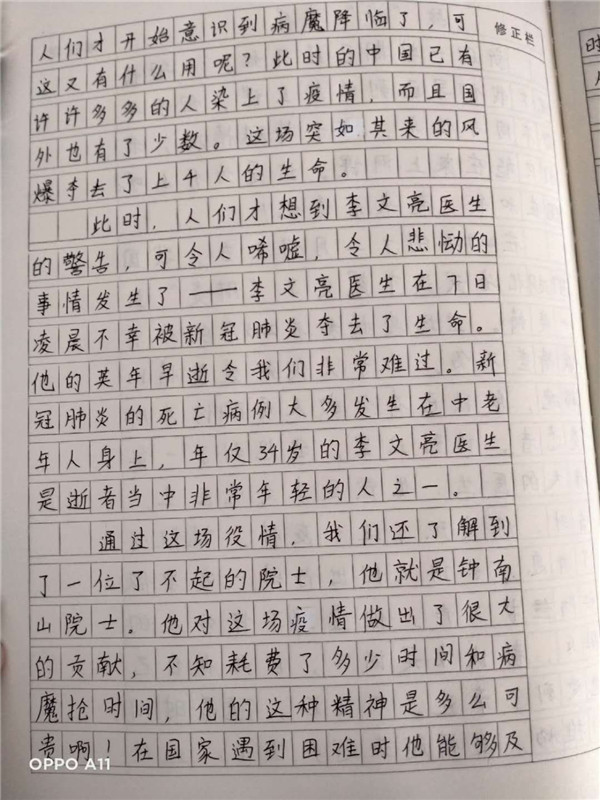 修正栏
人们才开始意识到病魔降临了，可
这又有什么用呢？此时的中国已有
许许多多的人染上了疫情，而且国
外也有了少数。这场突如其来的风
爆夺去了上千人的生命。
此时，人们才想到李文亮医生
的警告，可令人唏嘘，令人悲恸的
事情发生了——李文亮医生在7日
凌晨不幸被新冠肺炎夺去了生命。
他的英年早逝令我们非常难过。新
冠肺炎的死亡病例大多发生在中老
年人身上，年仅34岁的李文亮医生
是逝者当中非常年轻的人之一。
通过这场役情，我们还了解到
了一位了不起的院士，他就是钟南
山院士。他对这场疫情做出了很大
的贡献，不知耗费了多少时间和病
魔抢时间，他的这种精神是多么可
贵啊！在国家遇到困难时他能够及
OPPO A11